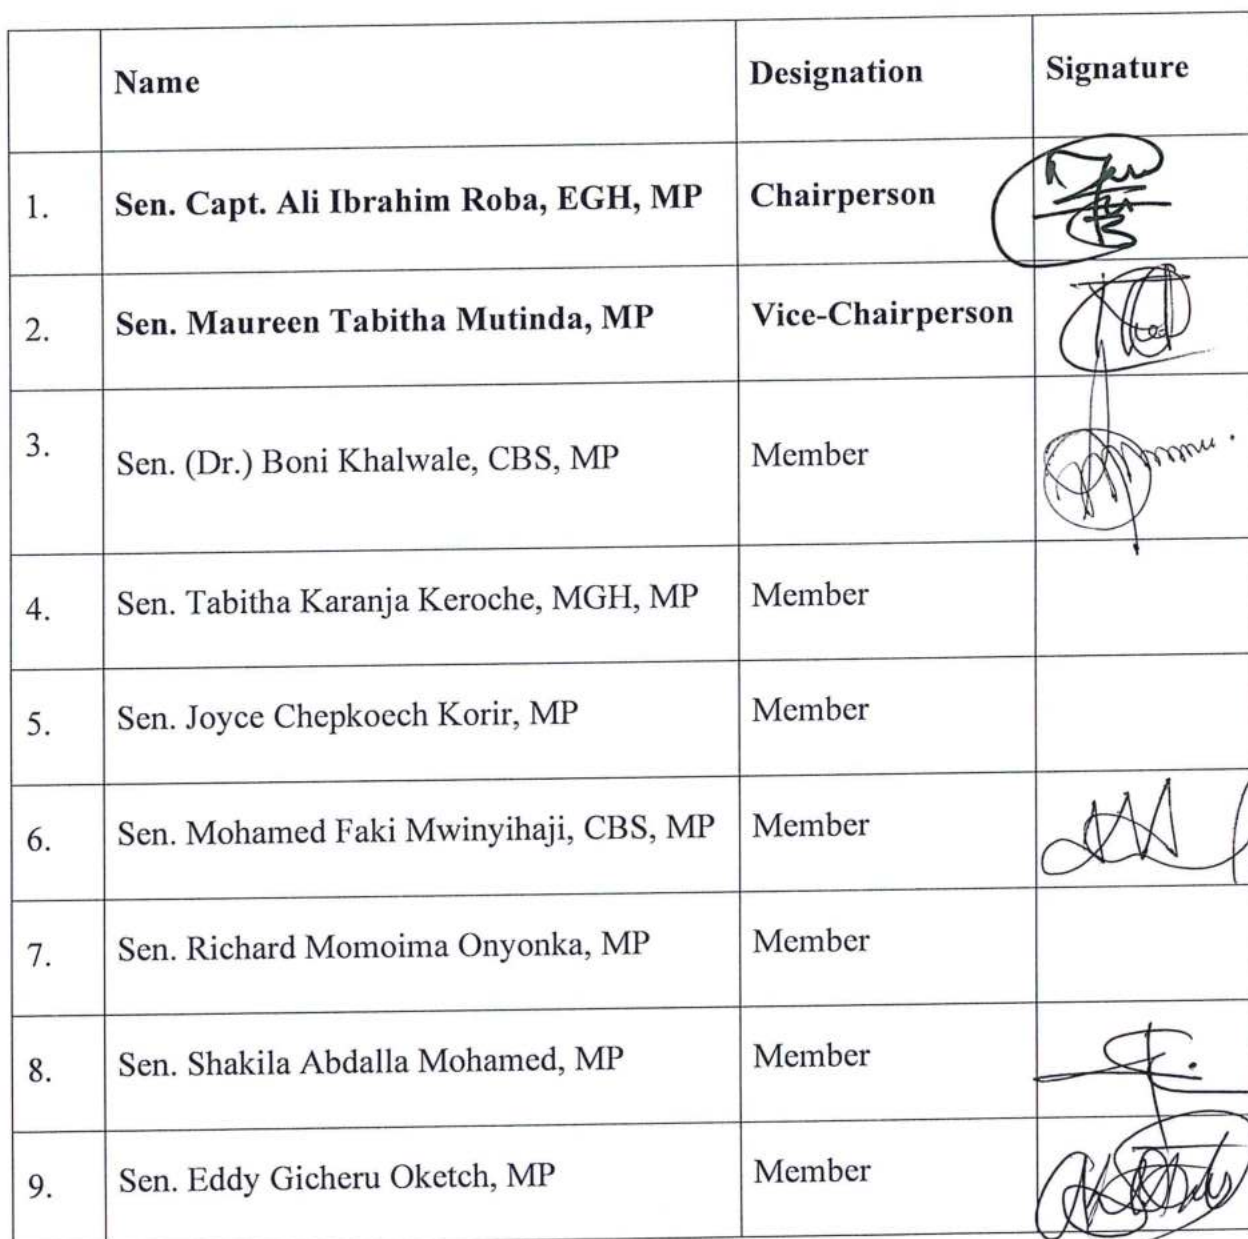 Name Designation Signature
1. Sen. Capt. Ali Ibrahim Roba, EGH, MP Chairperson
2. Sen. Maureen Tabitha Mutinda, MP Vice-Chairperson
3. Sen. (Dr.) Boni Khalwale, CBS, MP Member
4. Sen. Tabitha Karanja Keroche, MGH, MP Member
5. Sen. Joyce Chepkoech Korir, MP Member
6. Sen. Mohamed Faki Mwinyihaji, CBS, MP Member
7. Sen. Richard Momoima Onyonka, MP Member
8. Sen. Shakila Abdalla Mohamed, MP Member
9. Sen. Eddy Gicheru Oketch, MP Member